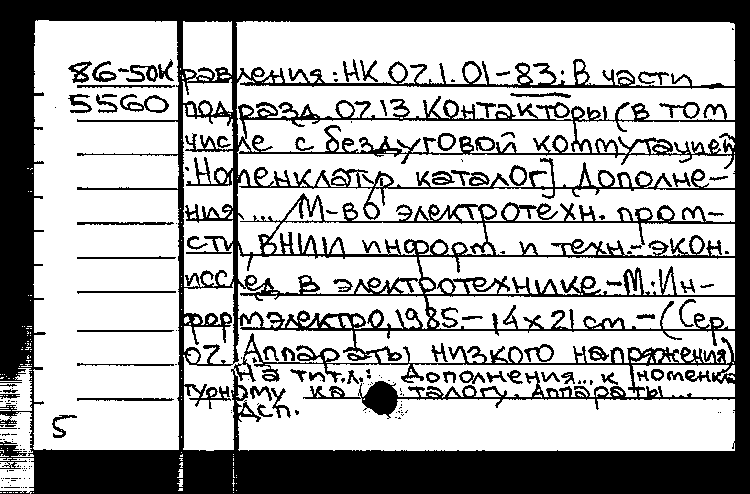 86-50К равления: НК 07.1.01-83: В части
5560 подразд. 07.13 Контакторы (в том
числе с бездуговой коммутацией)
: Номенклатур. каталог]. Дополне-
ния... М-во электротехн. пром-
сти, ВНИИ информ. и техн.-экон.
исслед. в электротехнике.-М.: Ин-
формэлектро, 1985.- 14 х 21 см. - (Сер.
07. Аппараты низкого напряжения)
На тит.л.: Дополнения... к номенкла
турному каталогу. Аппараты...
ДСП.
5